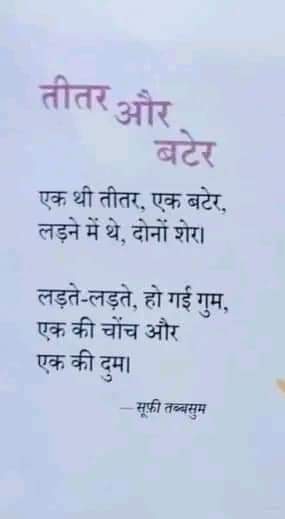 तीतर और
बटेर
एक थी तीतर, एक बटेर,
लड़ने में थे, दोनों शेर।
लड़ते-लड़ते, हो गई गुम,
एक की चोंच और
एक की दुम।
— सूफ़ी तब्बसुम